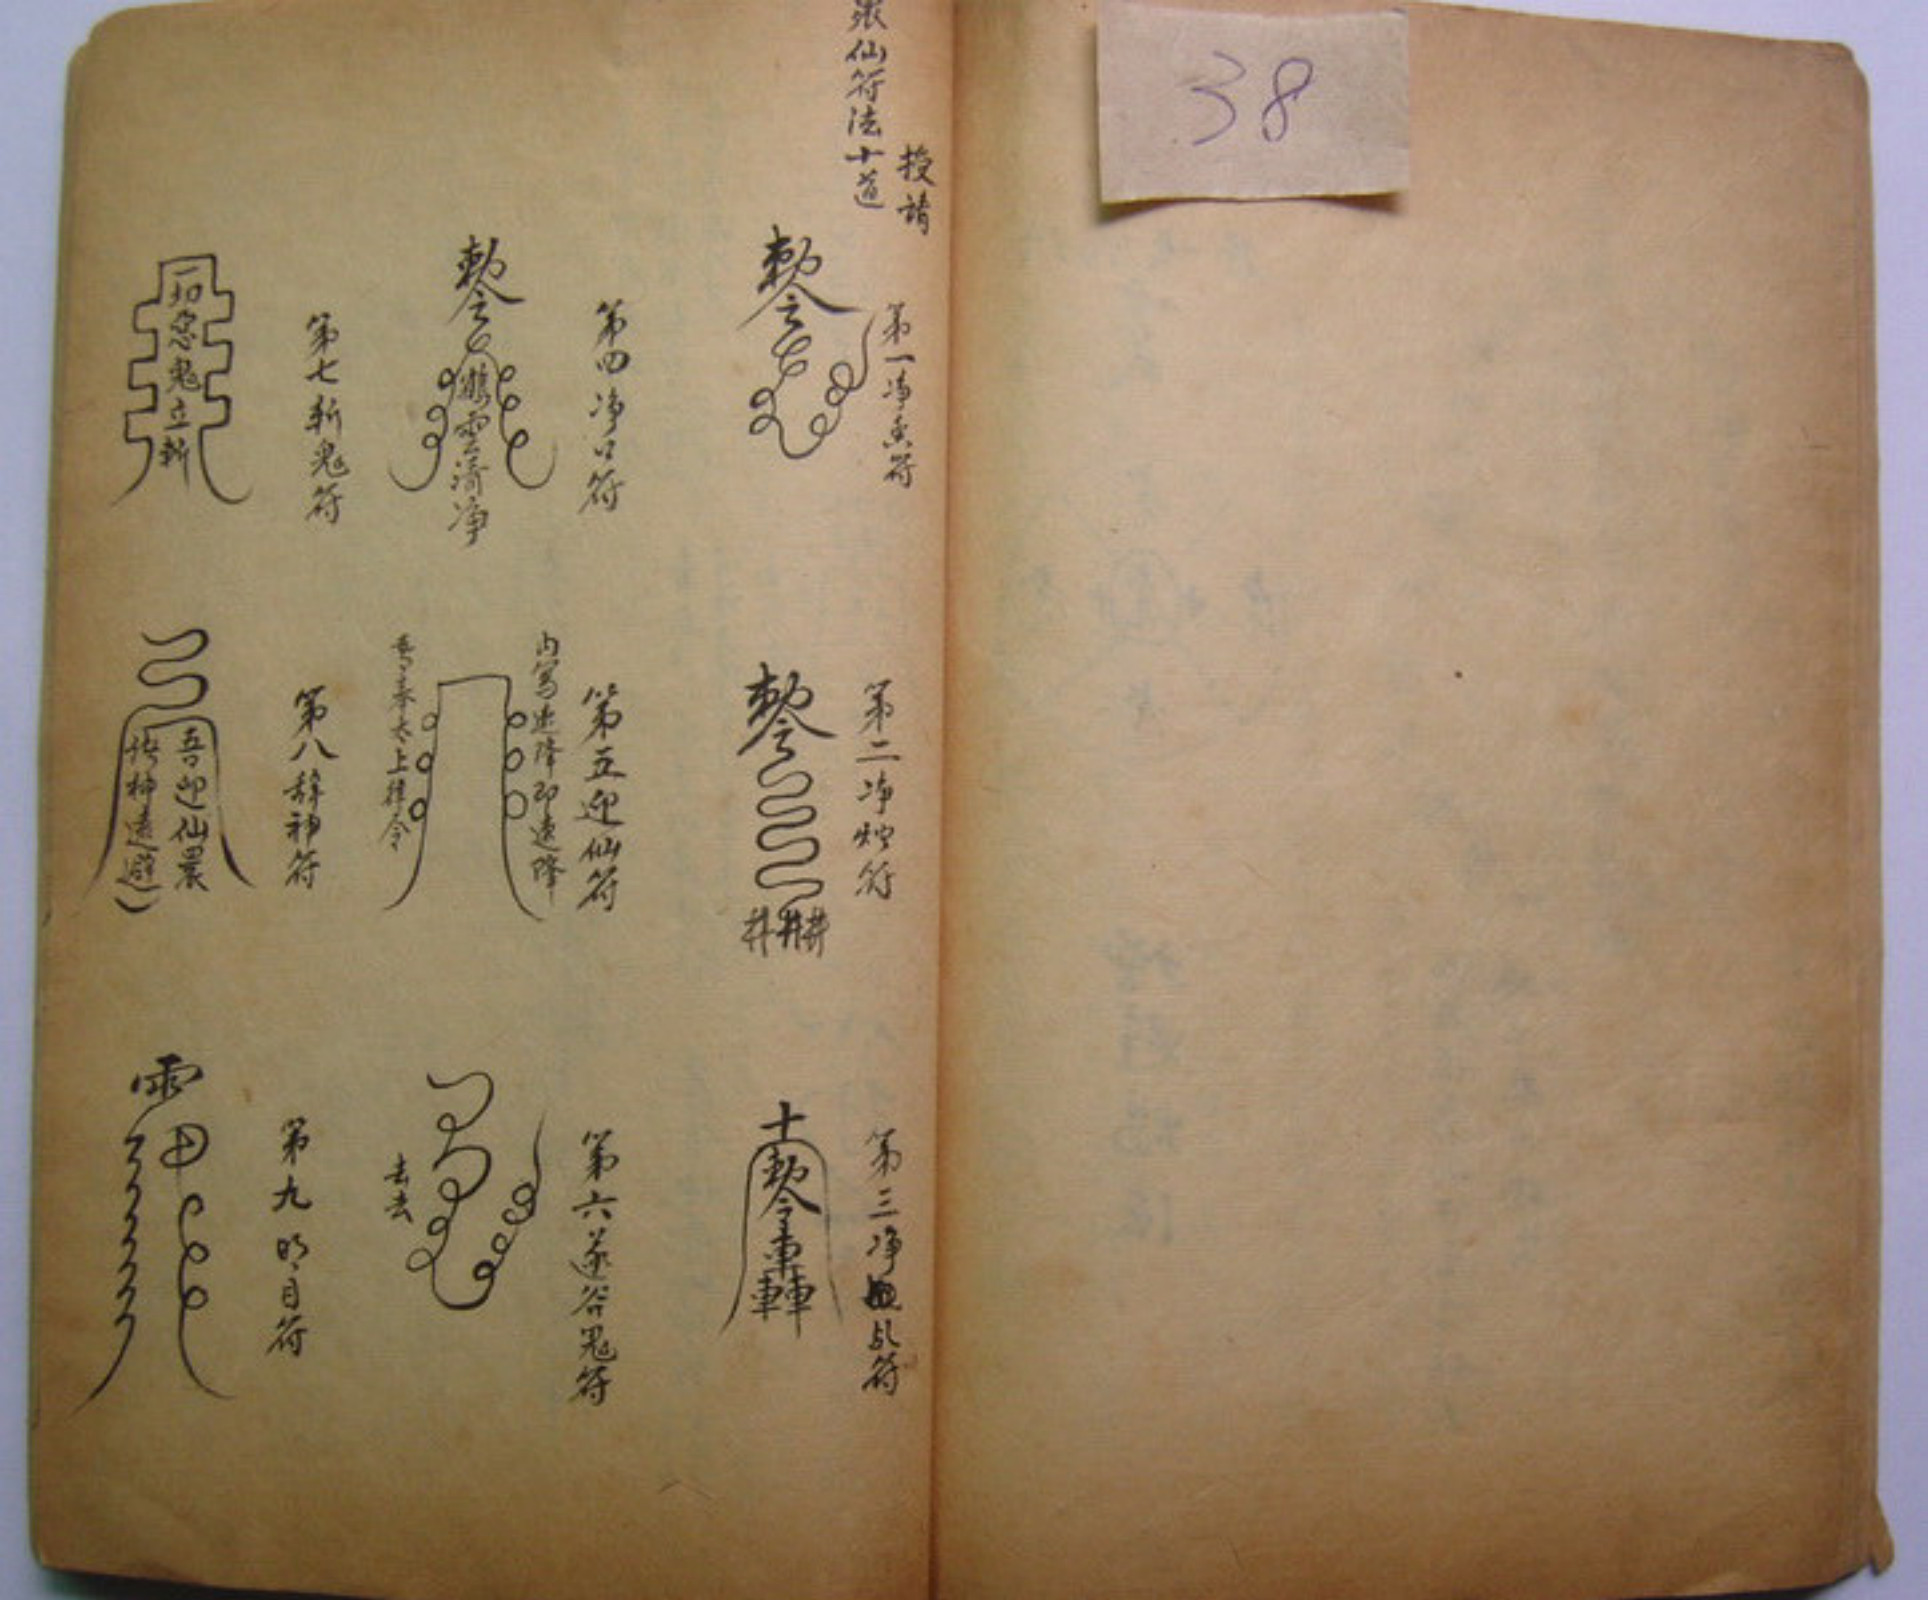 38
授請
仙符法十道
第一净香符
敕令
第二净炉符
敕令
井井井
第三净坛符
十
敕令
車車車
第四净口符
敕令
雲清净
第五迎仙符
内写速降即速降
吾奉太上律令
第六逐谷鬼符
去去
第七斬鬼符
一切惡鬼立斬
第八辞神符
吾迎仙
神遠避
第九明目符
雨田